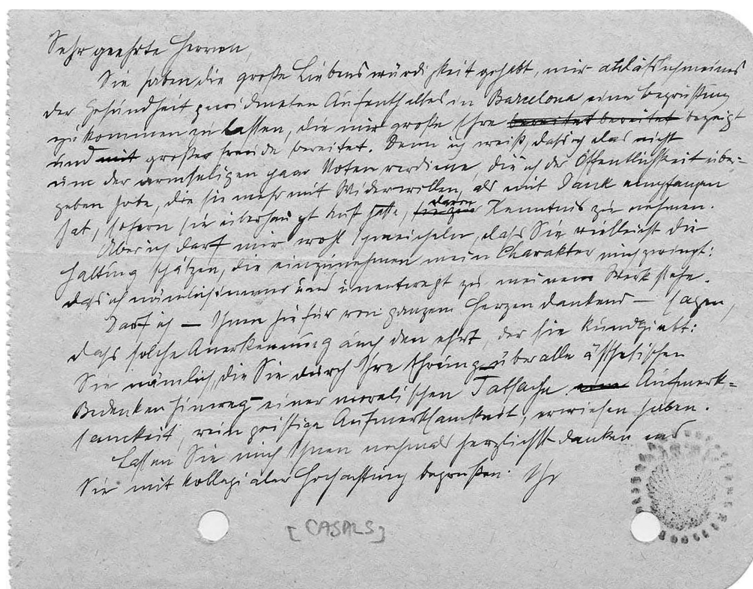 Sehr geehrte Herren,
Sie haben die große Liebenswürdigkeit gehabt, mir anläßlich meines
der Gesundheit gewidmeten Aufenthaltes in Barcelona eine Begrüßung
zukommen zu lassen, die mir große Ehre bereitet bereitet bezeigt
und mit großer Freude bereitet. Denn ich weiß, dass ich das nicht
um der armseligen paar Noten verdiene, die ich der Öffentlichkeit über-
geben habe, die sie mehr mit Widerwillen, als mit Dank empfangen
hat, sofern sie überhaupt Lust hatte, davon Kenntnis zu nehmen.
Aber ich darf mir wohl schmeicheln, dass Sie vielleicht die
Haltung schätzen, die einzunehmen mein Charakter mich zwingt:
dass ich nämlich immer und unentwegt zu meinem Werk stehe.
Darf ich — Ihnen hiefür von ganzem Herzen dankend — sagen,
dass solche Anerkennung auch den ehrt, der sie kundgiebt:
Sie nämlich, die Sie durch Ihre Ehrung über alle ästhetischen
Bedenken hinweg einer moralischen Tatsache Aufmerk-
samkeit, rein geistige Aufmerksamkeit, erwiesen haben.
Lassen Sie mich Ihnen nochmals herzlichst danken und
Sie mit kollegialer Hochachtung begrüßen. Ihr
[CASALS]